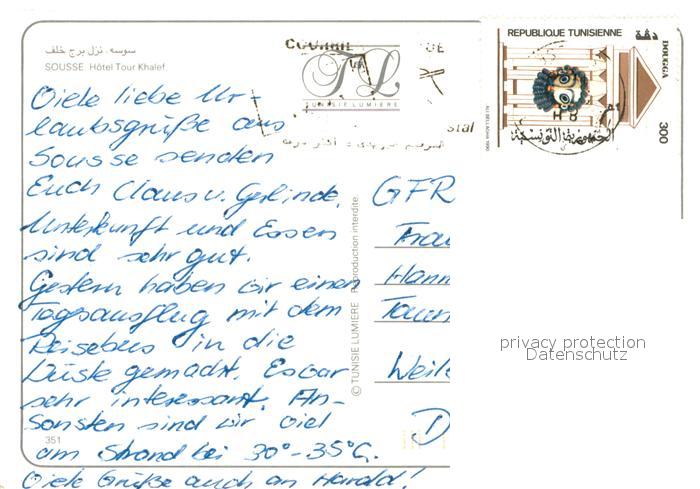 سوسه. نزل برج خلف
SOUSSE Hôtel Tour Khalef
TL
TUNISIE LUMIERE
REPUBLIQUE TUNISIENNE
DOUGGA
300
الجمهورية التونسية
ALI BELLAGHA 1990
Viele liebe Ur-
laubsgrüße aus
Sousse senden
Euch Claus u. Gerlinde.
Unterkunft und Essen
sind sehr gut.
Gestern haben wir einen
Tagesausflug mit dem
Reisebus in die
Wüste gemacht. Es war
sehr interessant. An-
sonsten sind wir viel
am Strand bei 30°-35°C.
Viele Grüße auch an Harald!
GFR
Frau
Hann
Taun
Weil
D
© TUNISIE LUMIERE Reproduction interdite.
351
privacy protection
Datenschutz